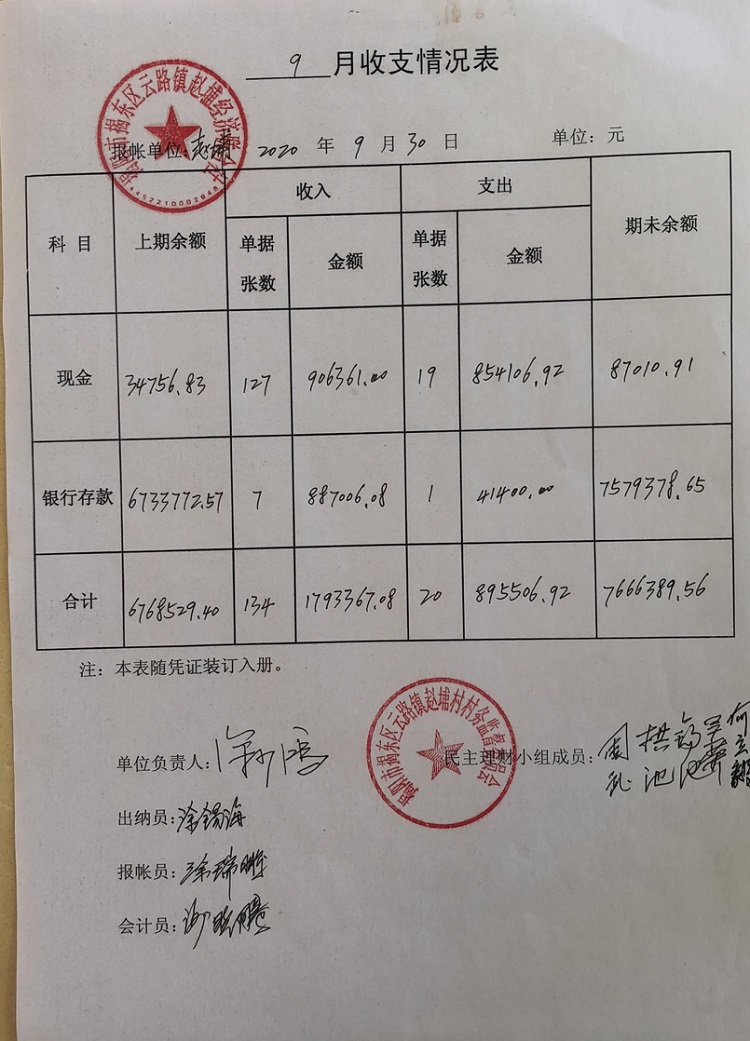 9 月收支情况表
揭阳市揭东区云路镇赵埔经济联合社
4452210002948
报帐单位: 赵埔 2020 年 9 月 30 日 单位: 元
科 目 上期余额 收入 支出 期未余额
单据张数 金额 单据张数 金额
现金 34756.83 127 906361.00 19 854106.92 87010.91
银行存款 6733772.57 7 887006.08 1 41400.00 7579378.65
合计 6768529.40 134 1793367.08 20 895506.92 7666389.56
注: 本表随凭证装订入册。
揭阳市揭东区云路镇赵埔村村务监督委员会
单位负责人: 民主理财小组成员:
出纳员: 涂锡海
报帐员:
会计员: